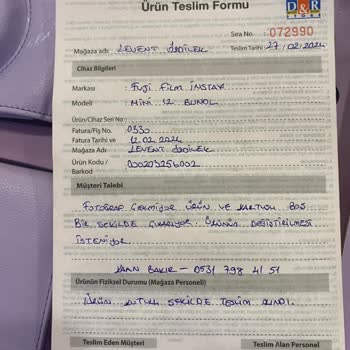 Ürün Teslim Formu
D&R
Sıra No: 072990
Mağaza adı : LEVENT ÖZDİLEK Teslim Tarihi: 27/02/2024
Cihaz Bilgileri
Markası : FUJİ FİLM İNSTAX
Modeli : MİNİ 12 BUNOL
Ürün/Cihaz Seri No :
Fatura/Fiş No. : 0330
Fatura Tarihi ve : 12.02.2024
Mağaza Adı : LEVENT ÖZDİLEK
Ürün Kodu / : 000203256002
Barkod
Müşteri Talebi
FOTOĞRAF ÇEKMİYOR ÜRÜN VE KARTUŞU BOŞ
BİR ŞEKİLDE ÇIKARIYOR ÜRÜNÜN DEĞİŞTİRİLMESİ
İSTENİYOR
BAKIR - 0531 798 41 51
Ürünün Fiziksel Durumu (Mağaza Personeli)
ÜRÜN KUTULU ŞEKİLDE TESLİM ALINDI.
Teslim Eden Müşteri Teslim Alan Personel